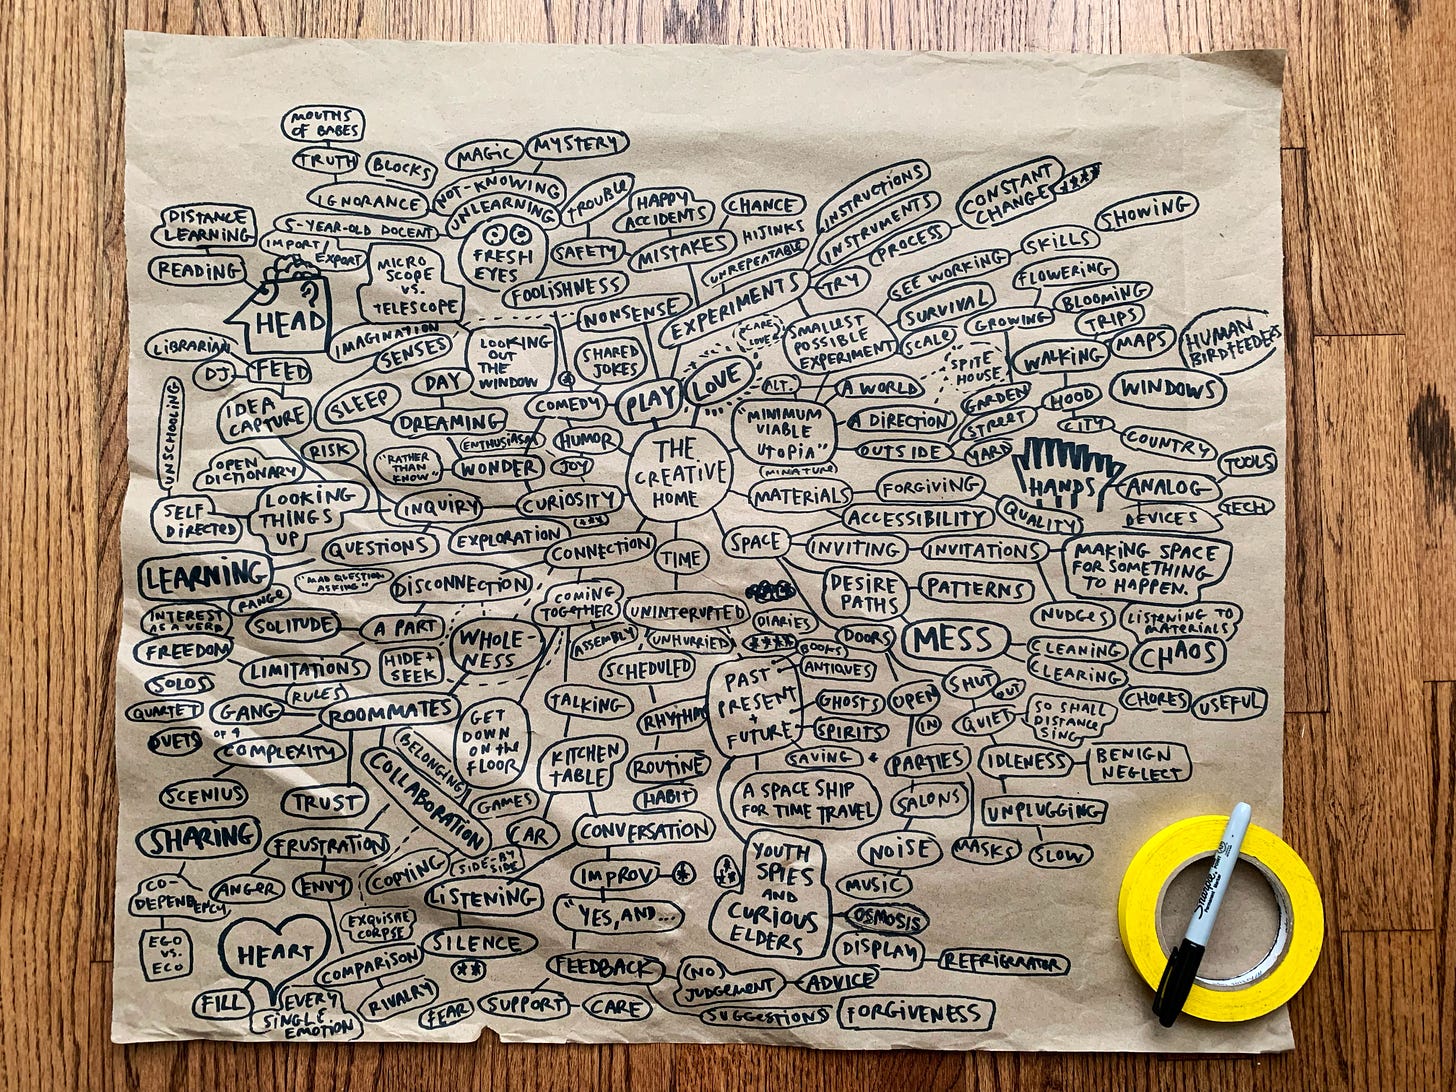 MOUTHS
OF BABES
TRUTH
BLOCKS
MAGIC
MYSTERY
IGNORANCE
NOT-KNOWING
UNLEARNING
TROUBLE
HAPPY
ACCIDENTS
CHANCE
HIJINKS
INSTRUCTIONS
INSTRUMENTS
PROCESS
CONSTANT
CHANGE
****
SHOWING
DISTANCE
LEARNING
READING
5-YEAR-OLD DOCENT
IMPORT/
EXPORT
MICRO
SCOPE
VS.
TELESCOPE
FRESH
EYES
SAFETY
MISTAKES
UNREPEATABLE
FOOLISHNESS
NONSENSE
EXPERIMENTS
TRY
SEE WORKING
SKILLS
FLOWERING
SURVIVAL
BLOOMING
GROWING
TRIPS
SCALE
MAPS
HUMAN
BIRDFEEDERS
HEAD
IMAGINATION
SENSES
LOOKING
OUT
THE
WINDOW
SHARED
JOKES
SMALLEST
POSSIBLE
EXPERIMENT
SPITE
HOUSE
WALKING
WINDOWS
LIBRARIAN
DJ
FEED
DAY
SLEEP
DREAMING
COMEDY
PLAY
LOVE
ALT.
A WORLD
GARDEN
HOOD
IDEA
CAPTURE
ENTHUSIASM
HUMOR
"MINIMUM
VIABLE
UTOPIA"
A DIRECTION
STREET
CITY
COUNTRY
UNSCHOOLING
RISK
OPEN
DICTIONARY
"RATHER
THAN
KNOW"
WONDER
JOY
THE
CREATIVE
HOME
MINIATURE
OUTSIDE
YARD
TOOLS
HANDS
ANALOG
SELF
DIRECTED
LOOKING
THINGS
UP
INQUIRY
CURIOSITY
***
MATERIALS
FORGIVING
ACCESSIBILITY
QUALITY
DEVICES
TECH
QUESTIONS
EXPLORATION
CONNECTION
TIME
SPACE
INVITING
INVITATIONS
MAKING SPACE
FOR SOMETHING
TO HAPPEN.
LEARNING
"MAD QUESTION
ASKING"
DISCONNECTION
COMING
TOGETHER
UNINTERRUPTED
DESIRE
PATHS
PATTERNS
INTEREST
AS A VERB
RANGE
SOLITUDE
A PART
WHOLE-
NESS
ASSEMBLY
UNHURRIED
DIARIES
****
NUDGES
LISTENING TO
MATERIALS
FREEDOM
LIMITATIONS
HIDE +
SEEK
SCHEDULED
BOOKS
DOORS
MESS
CLEANING
CLEARING
CHAOS
SOLOS
RULES
QUARTET
GANG
OF 4
ROOMMATES
GET
DOWN
ON the
FLOOR
TALKING
RHYTHM
PAST
PRESENT
+
FUTURE
ANTIQUES
GHOSTS
SPIRITS
OPEN
IN
SHUT
OUT
QUIET
SO SHALL
DISTANCE
SING
CHORES
USEFUL
DUETS
COMPLEXITY
BELONGING
COLLABORATION
KITCHEN
TABLE
ROUTINE
HABIT
SAVING
PARTIES
IDLENESS
BENIGN
NEGLECT
SCENIUS
TRUST
GAMES
CAR
A SPACE SHIP
FOR TIME TRAVEL
SALONS
UNPLUGGING
SHARING
FRUSTRATION
COPYING
SIDE-BY
SIDE
CONVERSATION
YOUTH
SPIES
AND
CURIOUS
ELDERS
NOISE
MASKS
SLOW
CO-
DEPENDENCY
ANGER
ENVY
LISTENING
IMPROV
MUSIC
EXQUISITE
CORPSE
"YES, AND...
OSMOSIS
EGO
VS.
ECO
HEART
COMPARISON
SILENCE
**
FEEDBACK
(NO)
JUDGEMENT
ADVICE
DISPLAY
REFRIGERATOR
FILL
EVERY
SINGLE
EMOTION
RIVALRY
FEAR
SUPPORT
CARE
SUGGESTIONS
FORGIVENESS
Sharpie